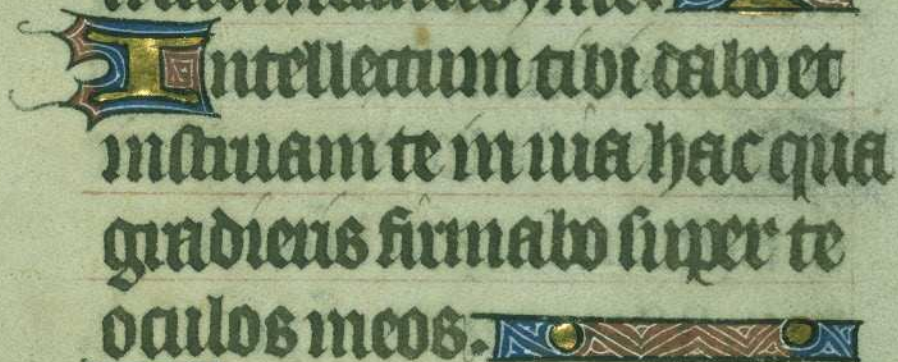 Intellectum tibi dabo et
instruam te in uia hac qua
gradieris firmabo super te
oculos meos.